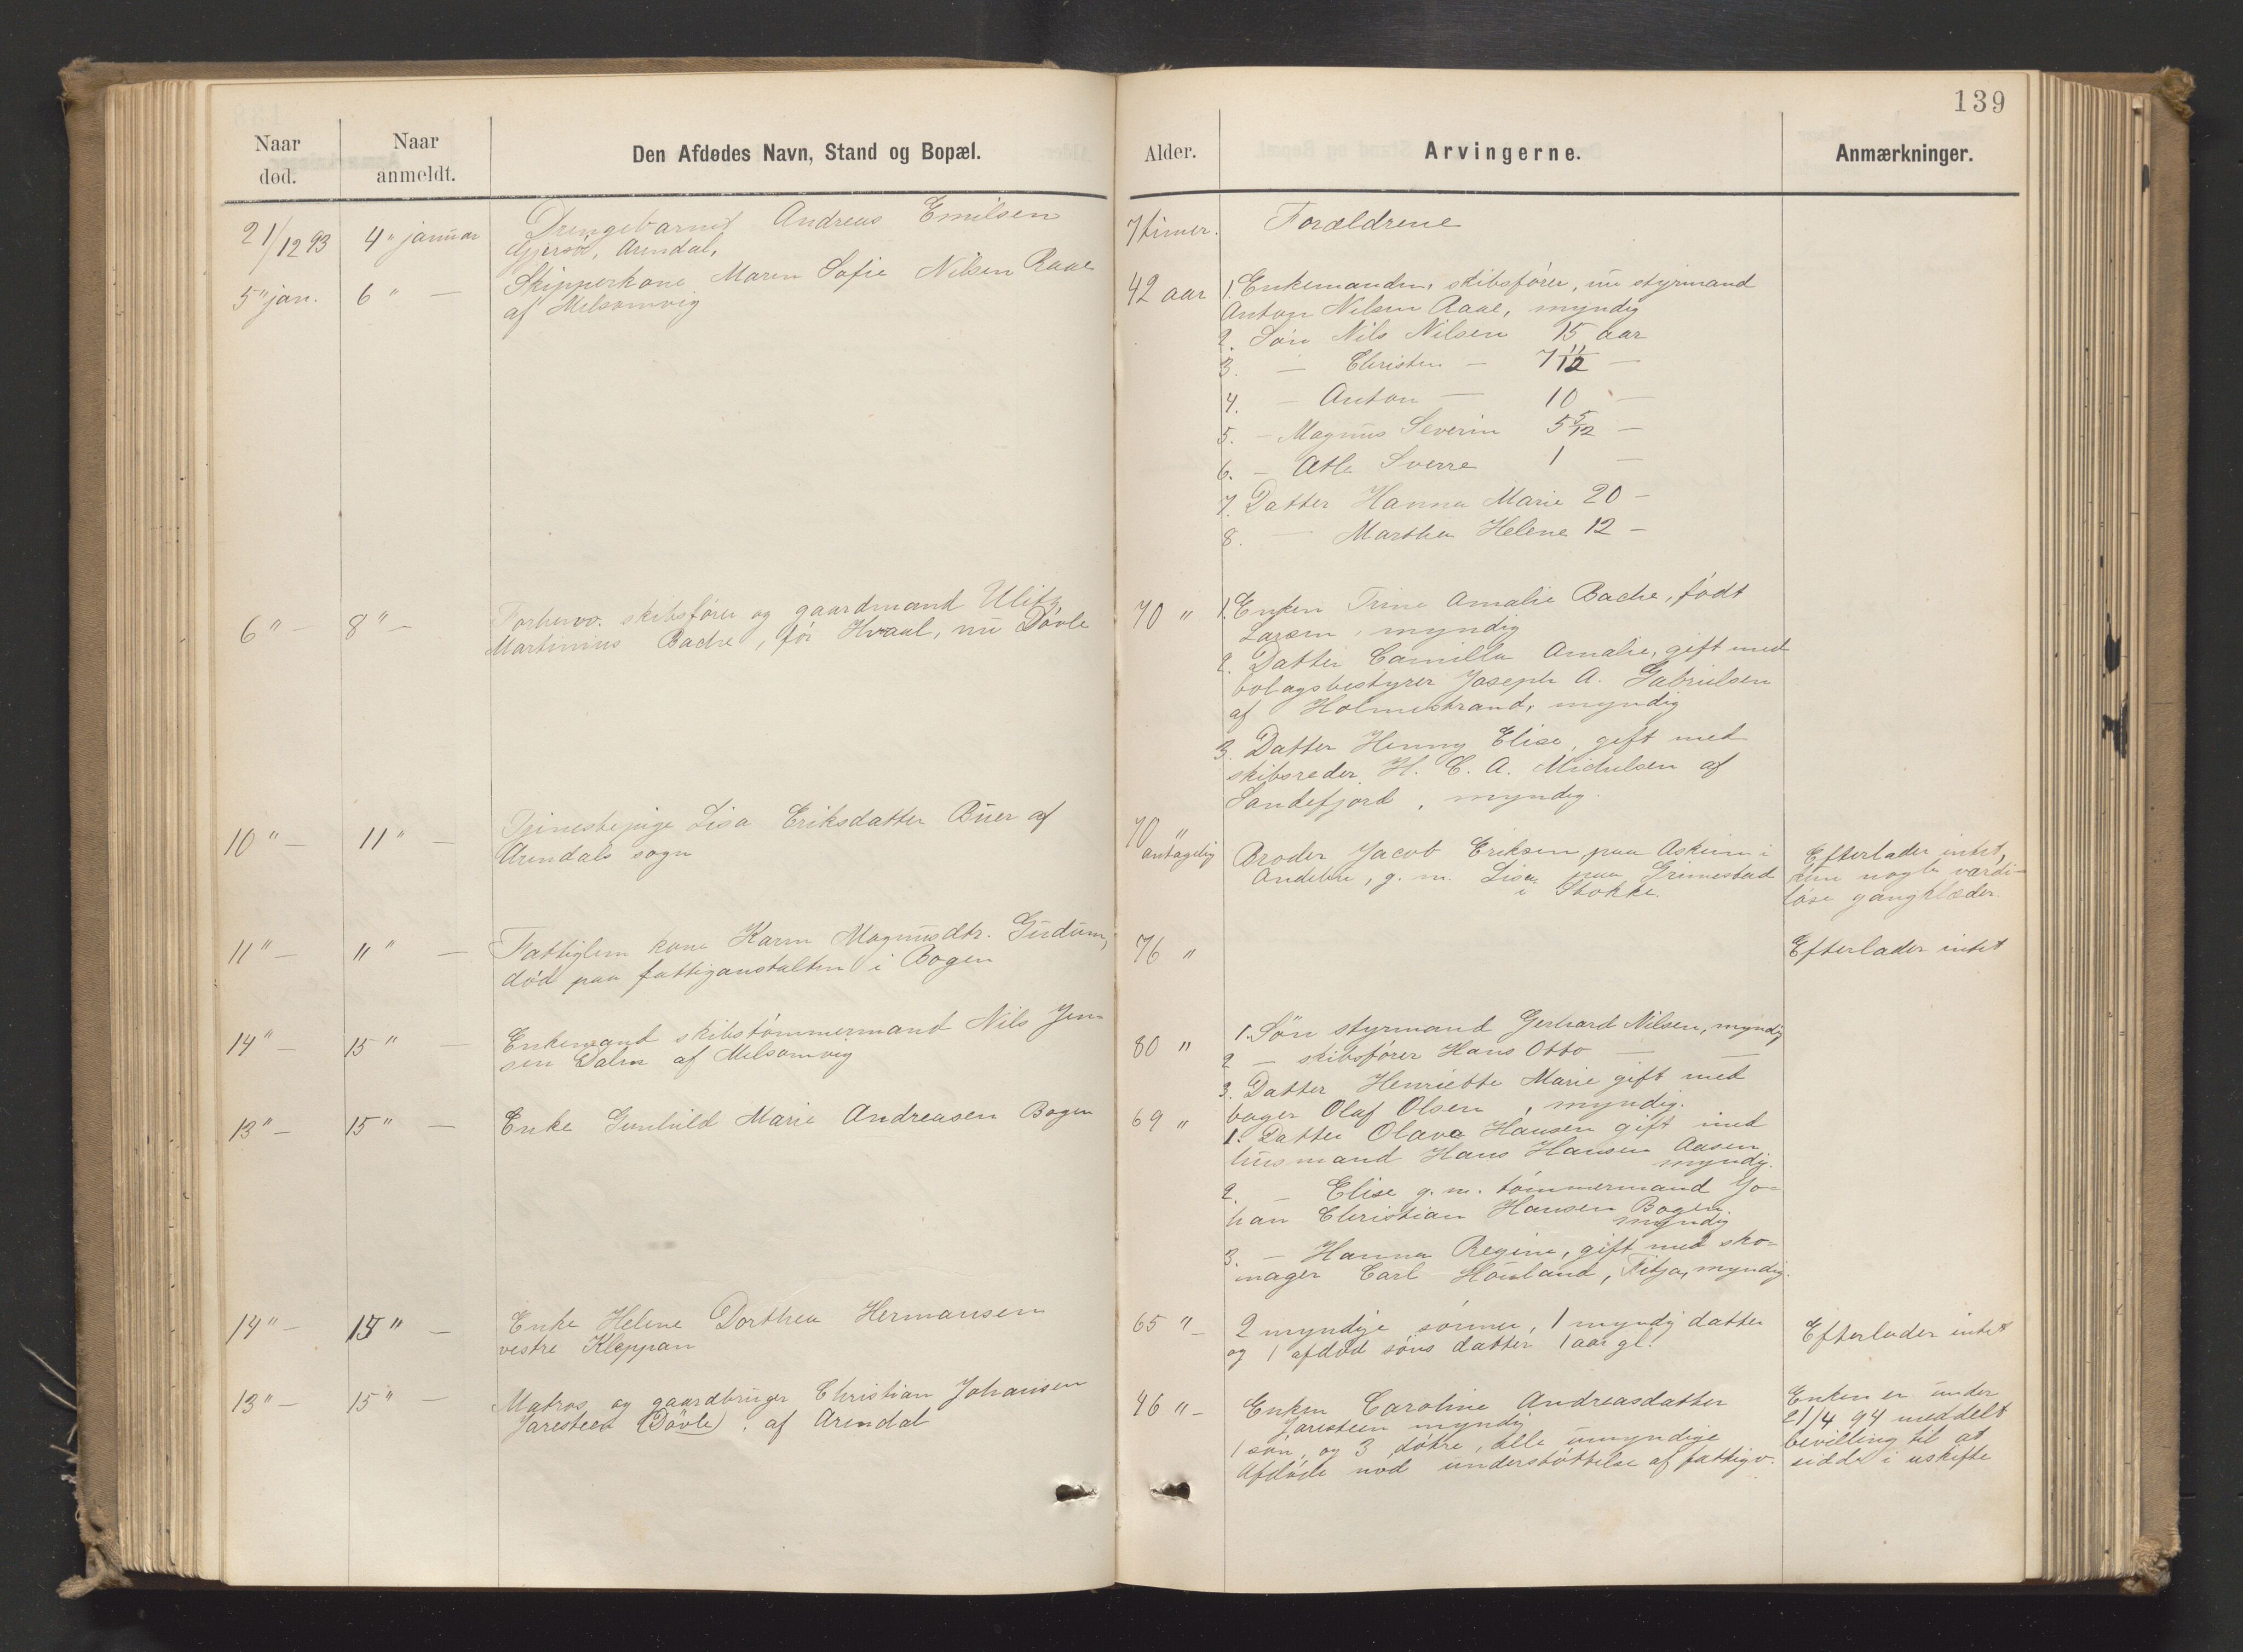 139
Naar død.
Naar anmeldt.
Den Afdødes Navn, Stand og Bopæl.
Alder.
Arvingerne.
Anmærkninger.
21/12 93 4" januar Drengebarnet Andreas Emilsen
Gjersö, Arendal,
7 timer. Forældrene
5" jan. 6" — Skipperkone Maren Sofie Nilsen Raae
af Melsomvig
42 aar 1. Enkemanden, skibsförer, nu styrmand
Anton Nilsen Raae, myndig
2. Sön Nils Nilsen 15 aar
3. — Christen — 7 11/12 —
4. — Anton — 10 —
5. — Magnus Severin 5 5/12 —
6. — Atle Sverre 1 —
7. Datter Hanna Marie 20 —
8. — Martha Helene 12 —
6" — 8" — Forhenv. skibsförer og gaardmand Ulitz
Martinius Bache, för Hvaal, nu Dövle
70 " 1. Enken Trine Amalie Bache, födt
Larsen, myndig
2. Datter Camilla Amalie, gift med
bolagsbestyrer Joseph A. Gabrielsen
af Holmestrand, myndig
3. Datter Henny Elise, gift med
skibsreder H. C. A. Michelsen af
Sandefjord, myndig.
10" — 11" — Tjenestepige Lisa Eriksdatter Buer af
Arendals sogn
70 "
antagelig Broder Jacob Eriksen paa Askeim i
Andebu, g. m. Lisa paa Grimestad
i Stokke.
Efterlader intet,
uden nogle værdi-
løse gangklæder.
11" — 11" — Fattiglem kone Karen Magnusdtr. Gudum,
död paa fattiganstalten i Bogen
76 "
Efterlader intet
14" — 15" — Enkemand skibstömmermand Nils Jen-
sen Dalen af Melsomvig
80 " 1. Sön styrmand Gerhard Nilsen, myndig
2 — skibsförer Hans Otto — —
3. Datter Henriette Marie gift med
bager Olaf Olsen, myndig.
13" — 15" — Enke Gunhild Marie Andreasen Bogen
69 " 1. Datter Olava Hansen gift med
husmand Hans Hansen Aasen
myndig.
2. — Elise g. m. tömmermand Jo-
han Christian Hansen Bogen.
myndig
3. — Hanna Regine, gift med sko-
mager Carl Höuland, Fitja, myndig.
14" — 15" — Enke Helene Dorthea Hermansen
vestre Kleppan
65 " — 2 myndige sönner, 1 myndig datter
og 1 afdöd söns datter 1 aar gl.
Efterlader intet
13" — 15" — Matros og gaardbruger Christian Johansen
Jaresteen (Dövle), af Arendal
46 " — Enken Caroline Andreasdatter
Jaresteen myndig
1 sön, og 3 dötre, alle umyndige
Afdöde nöd understöttelse af fattigv.
Enken er under
21/4 94 meddelt
bevilling til at
sidde i uskifte